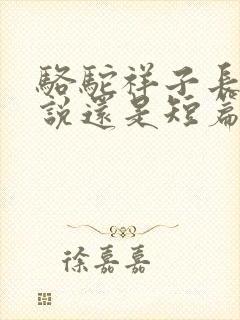 駱駝祥子長
說還是短篇
徐嘉嘉